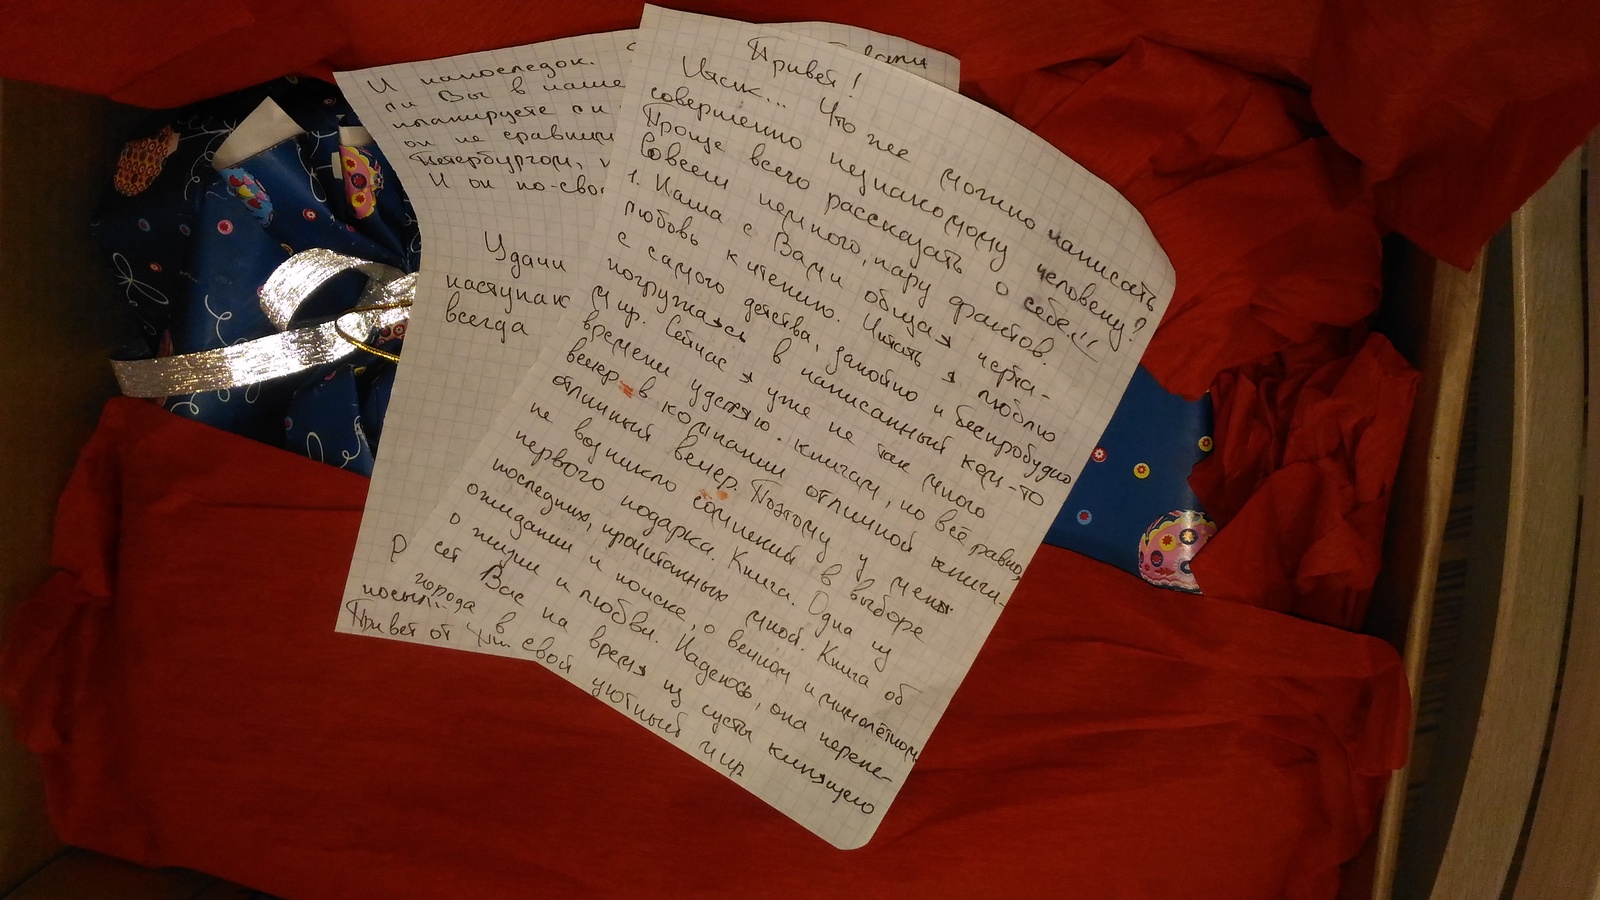 Привет!
Итак... Что же можно написать
совершенно незнакомому человеку?
Проще всего рассказать о себе!!!
Совсем немного, пару фактов.
1. Наша с Вами общая черта -
любовь к чтению. Читать я люблю
с самого детства, запойно и беспробудно
погружаясь в написанный кем-то
мир. Сейчас я уже не так много
времени уделяю книгам, но всё равно,
вечер в компании отличной книги -
отличный вечер. Поэтому у меня
не возникло сомнений в выборе
первого подарка. Книга. Одна из
последних, прочитанных мной. Книга об
ожидании и поиске, о вечном и мимолётном,
о жизни и любви. Надеюсь, она перене-
сет Вас на время из суеты кипящего
города в свой уютный мир
И напоследок.
ли Вы в наше
планируете ли
он не сравним
Петербургом,
И он по-сво
Удачи
наступаю
всегда
Р
посыл
Привет от
Вами